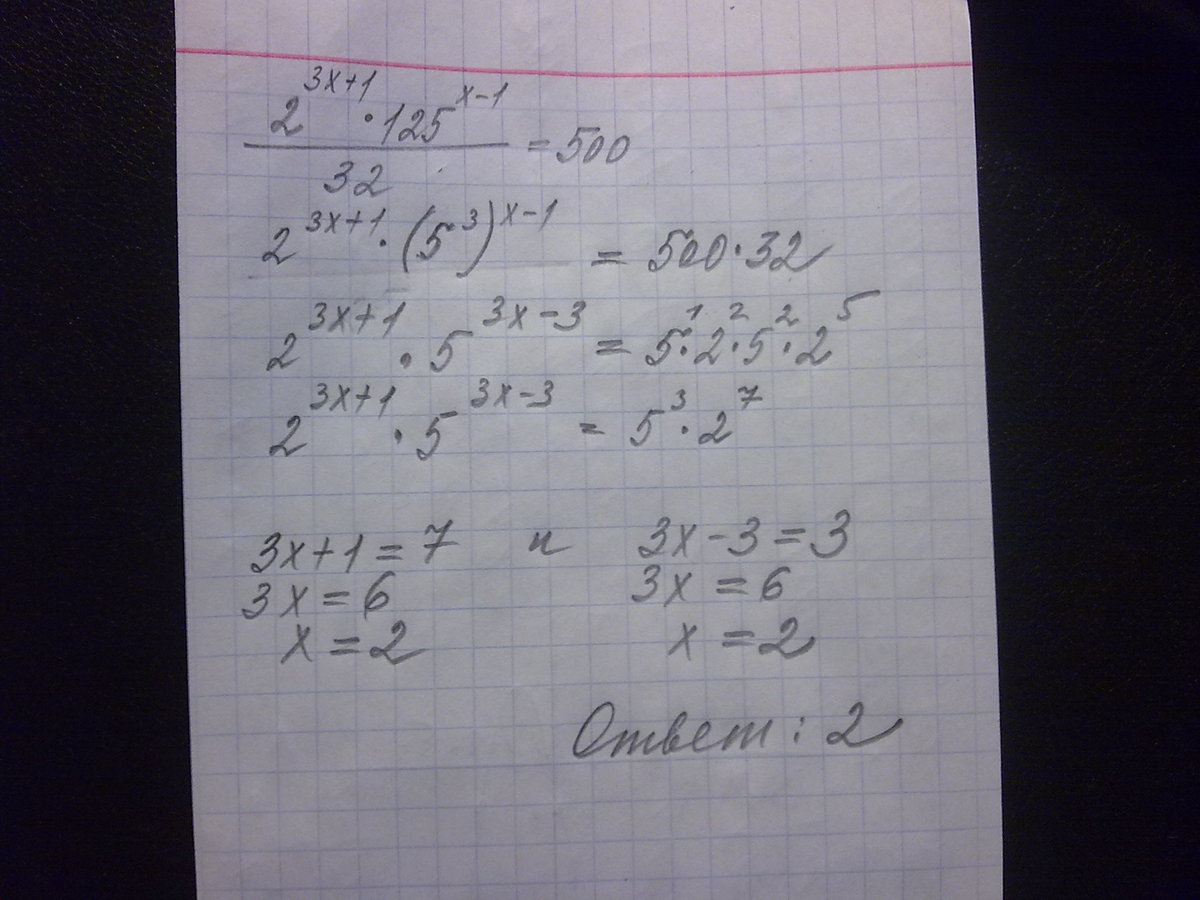 2^(3x+1) · 125^(x-1)
/ 32 = 500
2^(3x+1) · (5^3)^(x-1) = 500 · 32
2^(3x+1) · 5^(3x-3) = 5^1 · 2^2 · 5^2 · 2^5
2^(3x+1) · 5^(3x-3) = 5^3 · 2^7
3x+1=7 и 3x-3=3
3x=6 3x=6
x=2 x=2
Ответ: 2